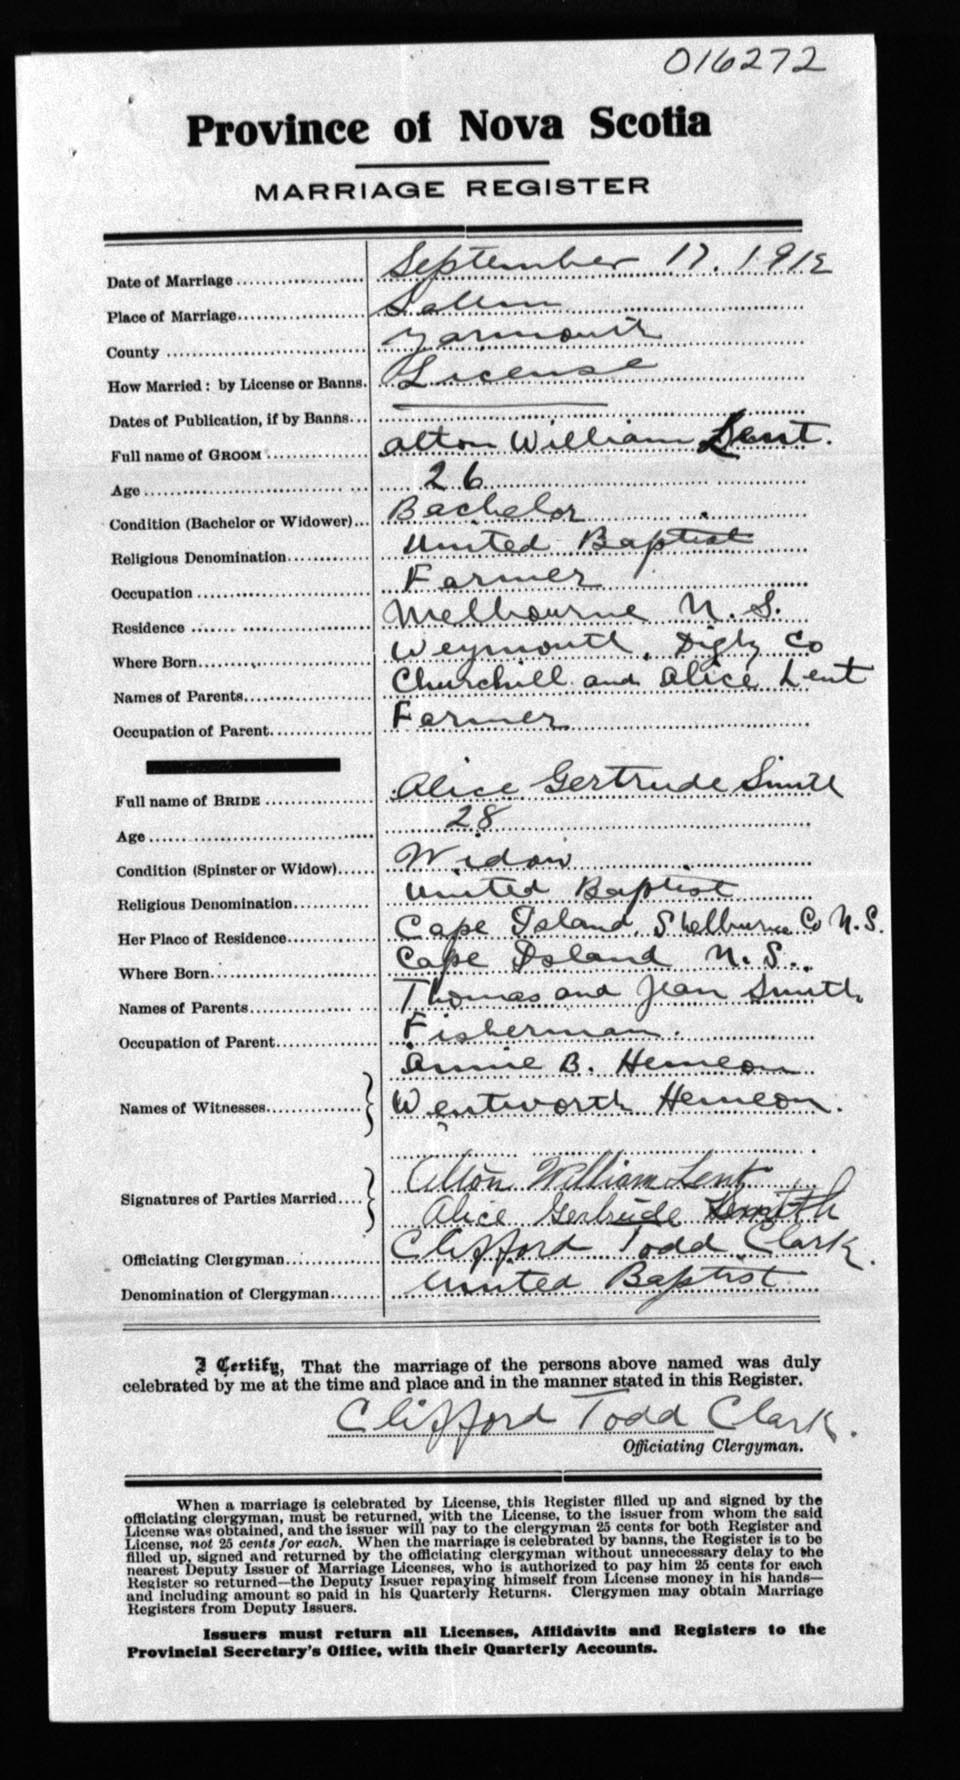 016272
Province of Nova Scotia
MARRIAGE REGISTER
Date of Marriage September 17. 1912
Place of Marriage Salem
County Yarmouth
How Married: by License or Banns. License
Dates of Publication, if by Banns
Full name of GROOM Alton William Lent.
Age 26
Condition (Bachelor or Widower) Bachelor
Religious Denomination United Baptist
Occupation Farmer
Residence Melbourne N. S.
Where Born Weymouth, Digby Co
Names of Parents Churchill and Alice Lent
Occupation of Parent Farmer
Full name of BRIDE Alice Gertrude Smith
Age 28
Condition (Spinster or Widow) Widow
Religious Denomination United Baptist
Her Place of Residence Cape Island, Shelburne Co N.S.
Where Born Cape Island N. S.
Names of Parents Thomas and Jean Smith
Occupation of Parent Fisherman.
Annie B. Hemeon
Names of Witnesses Wentworth Hemeon.
Alton William Lent
Signatures of Parties Married
Alice Gertrude Smith
Officiating Clergyman Clifford Todd Clark.
Denomination of Clergyman United Baptist
I Certify, That the marriage of the persons above named was duly
celebrated by me at the time and place and in the manner stated in this Register.
Clifford Todd Clark.
Officiating Clergyman.
When a marriage is celebrated by License, this Register filled up and signed by the
officiating clergyman, must be returned, with the License, to the issuer from whom the said
License was obtained, and the issuer will pay to the clergyman 25 cents for both Register and
License, not 25 cents for each. When the marriage is celebrated by banns, the Register is to be
filled up, signed and returned by the officiating clergyman without unnecessary delay to the
nearest Deputy Issuer of Marriage Licenses, who is authorized to pay him 25 cents for each
Register so returned—the Deputy Issuer repaying himself from License money in his hands—
and including amount so paid in his Quarterly Returns. Clergymen may obtain Marriage
Registers from Deputy Issuers.
Issuers must return all Licenses, Affidavits and Registers to the
Provincial Secretary's Office, with their Quarterly Accounts.